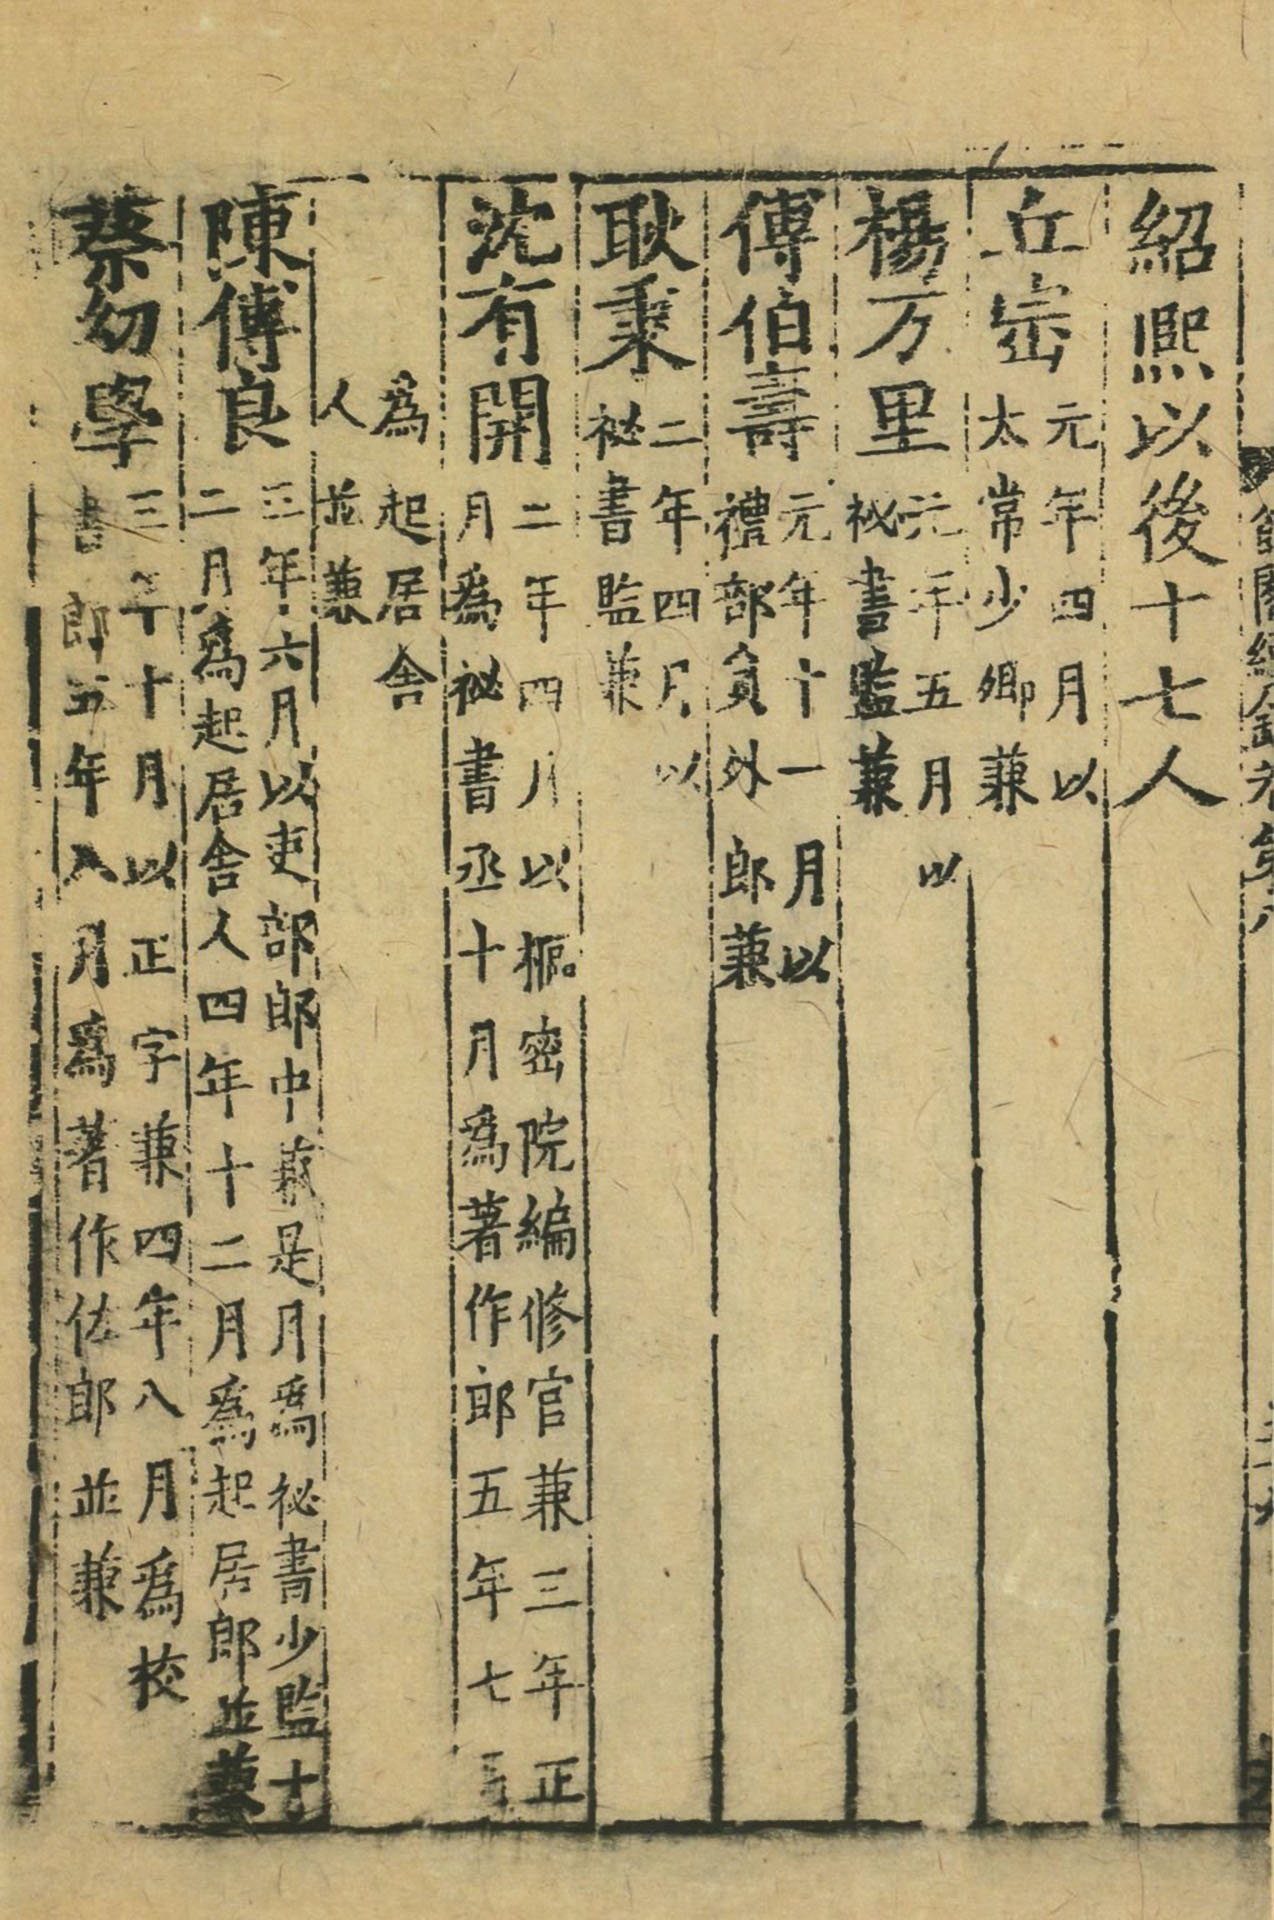 紹熙以後十七人
丘崈元年四月以
太常少卿兼
楊万里元年五月以
祕書監兼
傅伯壽元年十一月以
禮部貟外郎兼
耿秉二年四月以
祕書監兼
沈有開二年四月以樞密院編修官兼三年正
月為祕書丞十月為著作郎五年七
為起居舍
人並兼
陳傅良三年六月以吏部郎中兼是月為祕書少監十
二月為起居舍人四年十二月為起居郎並兼
蔡幼學三年十月以正字兼四年八月為校
書郎五年八月為著作佐郎並兼